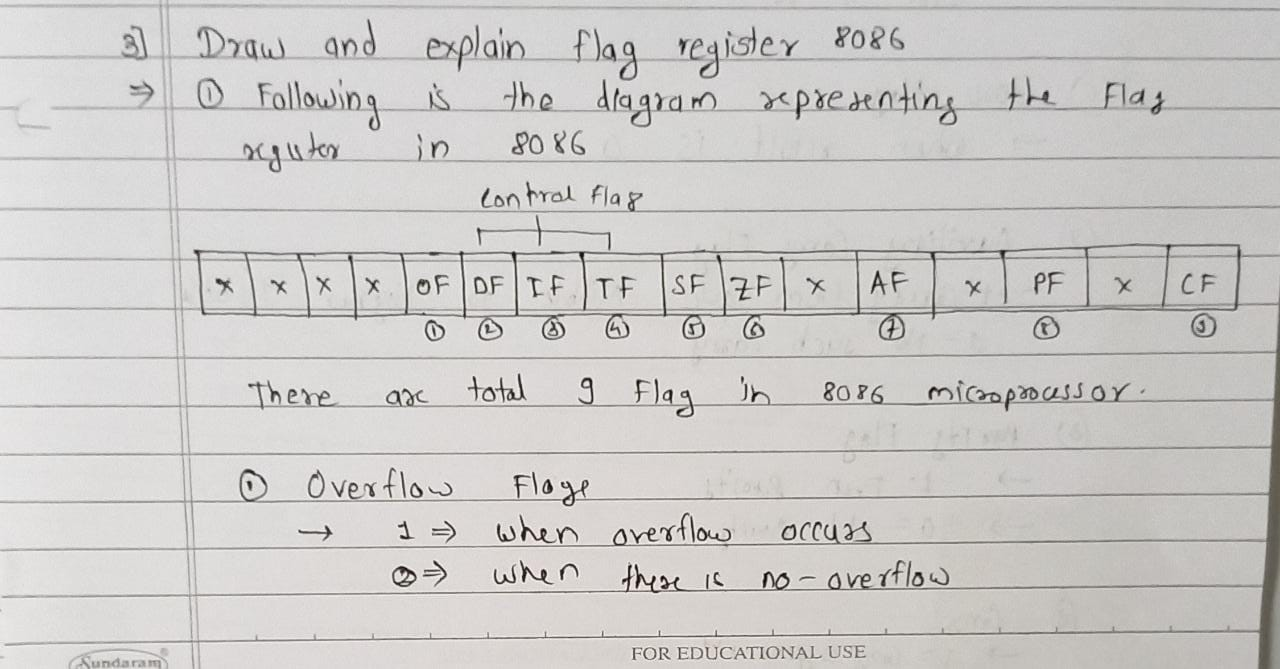 3] Draw and explain flag register 8086
⇒ ① Following is the diagram representing the Flag
register in 8086
Control Flag
x x x x OF DF IF TF SF ZF x AF x PF x CF
① ② ③ ④ ⑤ ⑥ ⑦ ⑧ ⑨
There are total 9 Flag in 8086 microprocessor.
① Overflow Flage
→ 1 ⇒ when overflow occurs
0 ⇒ when there is no-overflow
Sundaram® FOR EDUCATIONAL USE